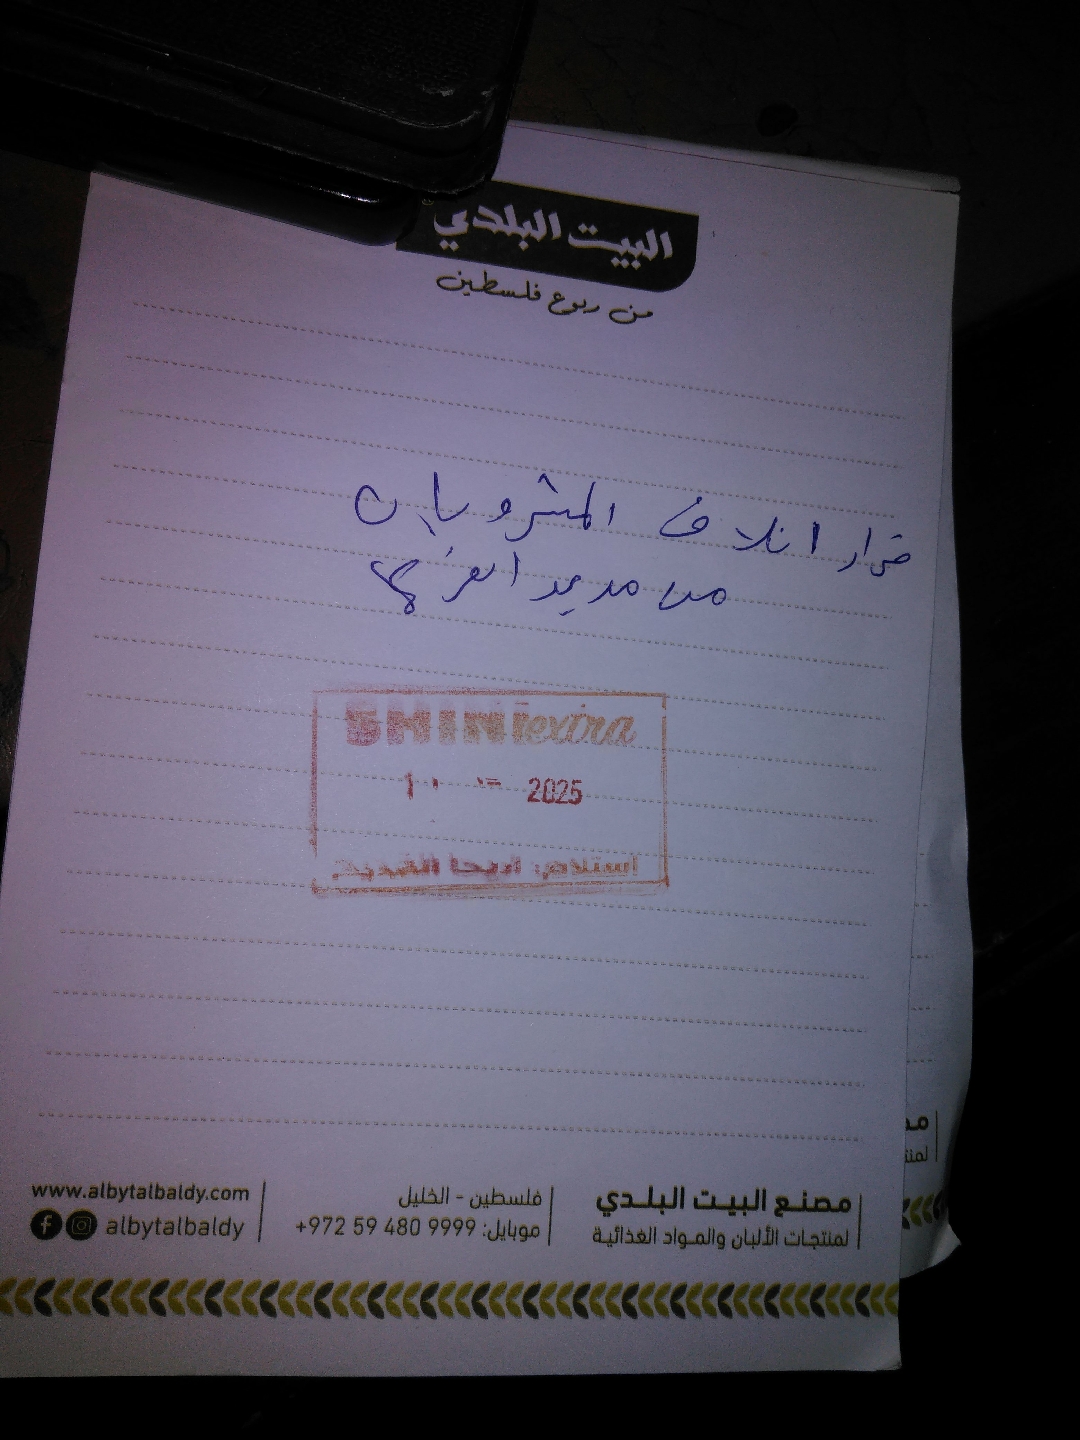 البيت البلدي
من ربوع فلسطين
قرار اتلاف المشروبات
من مدير الفرع
SHINI extra
2025
استلام: اريحا القديم
مصنع البيت البلدي
لمنتجات الألبان والمواد الغذائية
فلسطين - الخليل
موبايل: 9999 480 59 972+
www.albytalbaldy.com
albytalbaldy